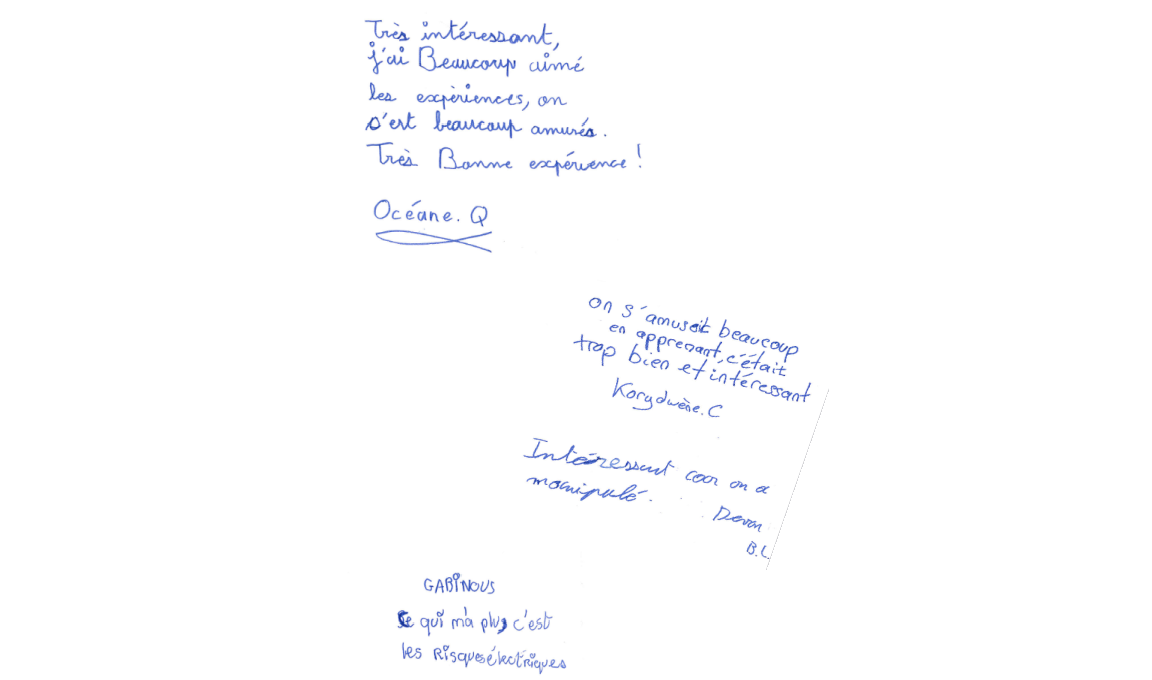 Très intéressant,
j'ai Beaucoup aimé
les expériences, on
s'est beaucoup amusés.
Très Bonne expérience !
Océane. Q
on s'amusait beaucoup
en apprenant, c'était
trop bien et intéressant
Korydwène. C
Intéressant car on a
manipulé.
Devon
B.L
GABiNOUS
Ce qui m'a plu, c'est
les RisquesélectRiques